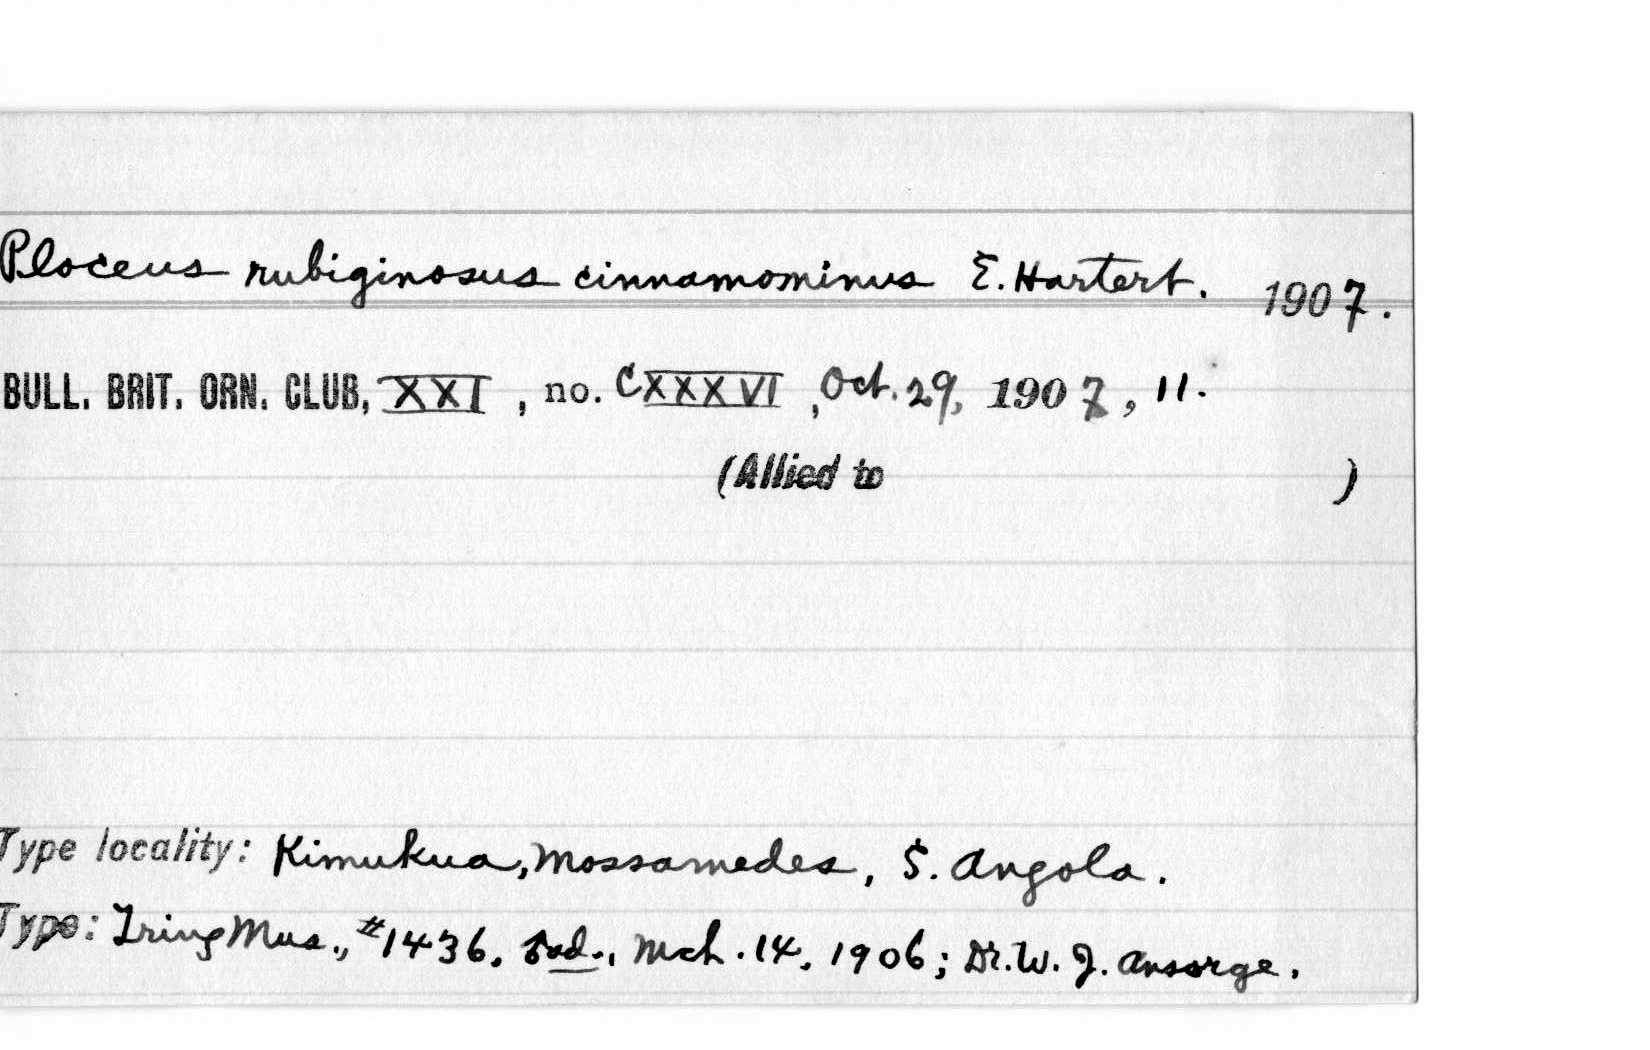 Ploceus rubiginosus cinnamominus E. Hartert. 1907.
BULL. BRIT. ORN. CLUB, XXI, no. CXXXVI, Oct. 29, 1907, 11.
(Allied to )
Type locality: Kimukua, Mossamedes, S. Angola.
Type: Tring Mus., #1436. ad., Mch. 14, 1906; Dr. W. J. Ansorge.